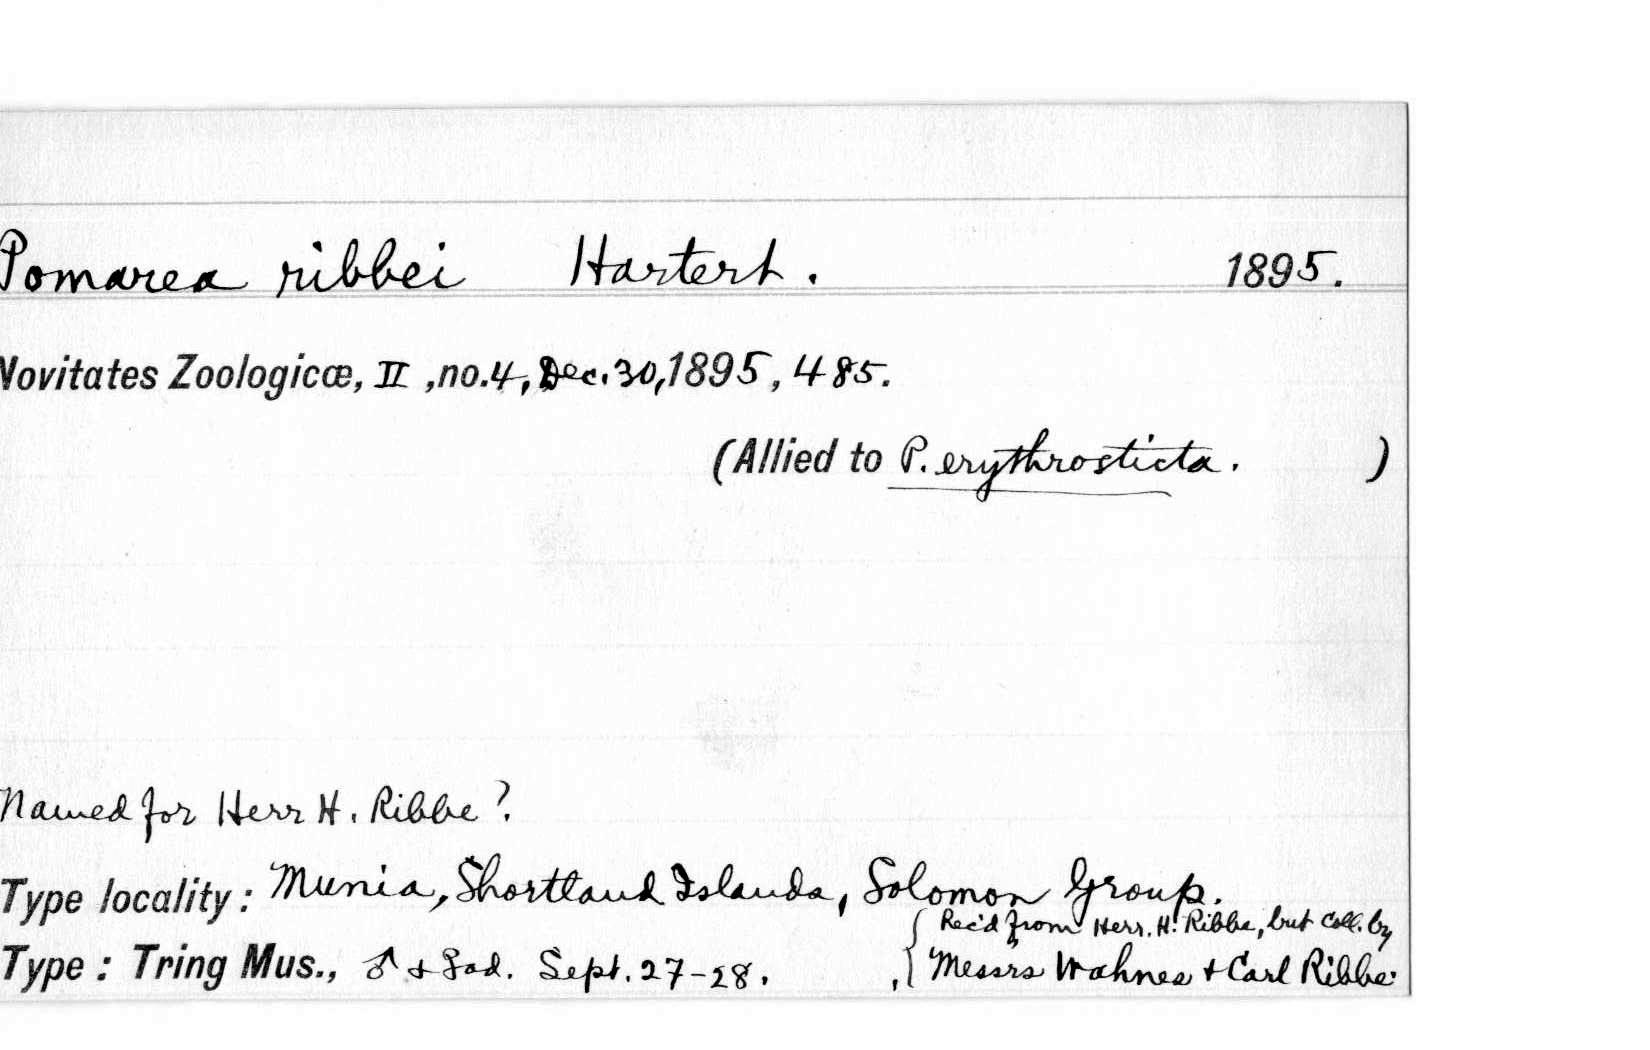 Pomarea ribbei Hartert. 1895.
Novitates Zoologicæ, II, no.4, Dec. 30, 1895, 485.
(Allied to P. erythrosticta. )
Named for Herr H. Ribbe?
Type locality: Munia, Shortland Islands, Solomon Group.
Rec'd from Herr. H. Ribbe, but coll. by
Type: Tring Mus., ♂ + ♀ ad. Sept. 27-28. , Messrs Wahnes + Carl Ribbe.